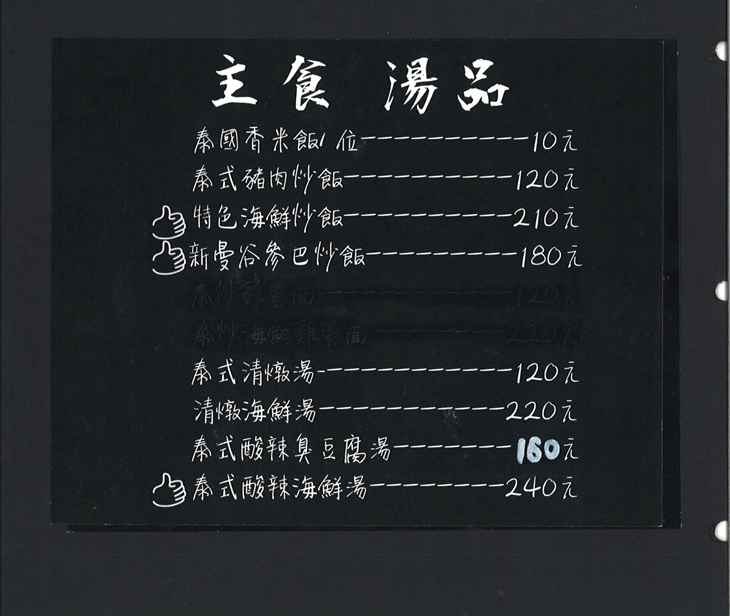 主食 湯品
泰國香米飯/位----------10元
泰式豬肉炒飯----------120元
特色海鮮炒飯----------210元
新曼谷參巴炒飯---------180元
泰炒雞蛋面-----------120元
泰炒海鮮雞蛋面---------220元
泰式清燉湯-----------120元
清燉海鮮湯-----------220元
泰式酸辣臭豆腐湯-------160元
泰式酸辣海鮮湯--------240元